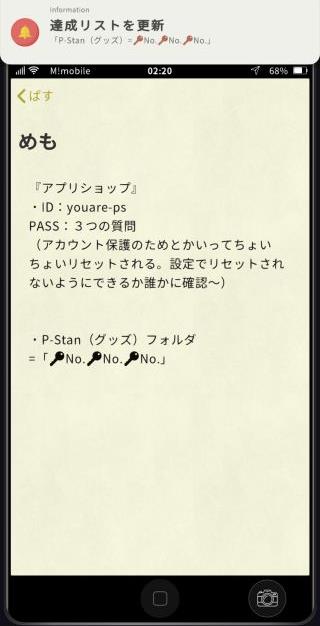 Information
達成リストを更新
「P-Stan（グッズ）=🔑No.🔑No.🔑No.」
M!mobile 02:20 68%
ぱす
めも
『アプリショップ』
・ID：youare-ps
PASS：３つの質問
（アカウント保護のためとかいってちょい
ちょいリセットされる。設定でリセットされ
ないようにできるか誰かに確認〜）
・P-Stan（グッズ）フォルダ
=「🔑No.🔑No.🔑No.」